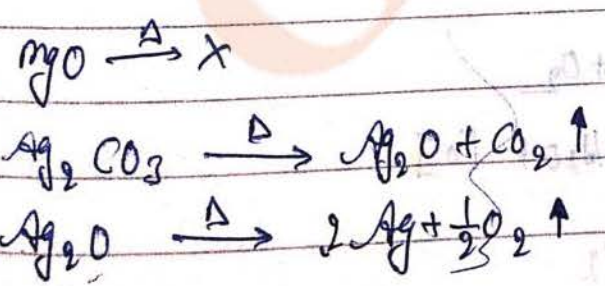 MgO —Δ→ X
Ag₂CO₃ —Δ→ Ag₂O + CO₂ ↑
Ag₂O —Δ→ 2Ag + ½O₂ ↑